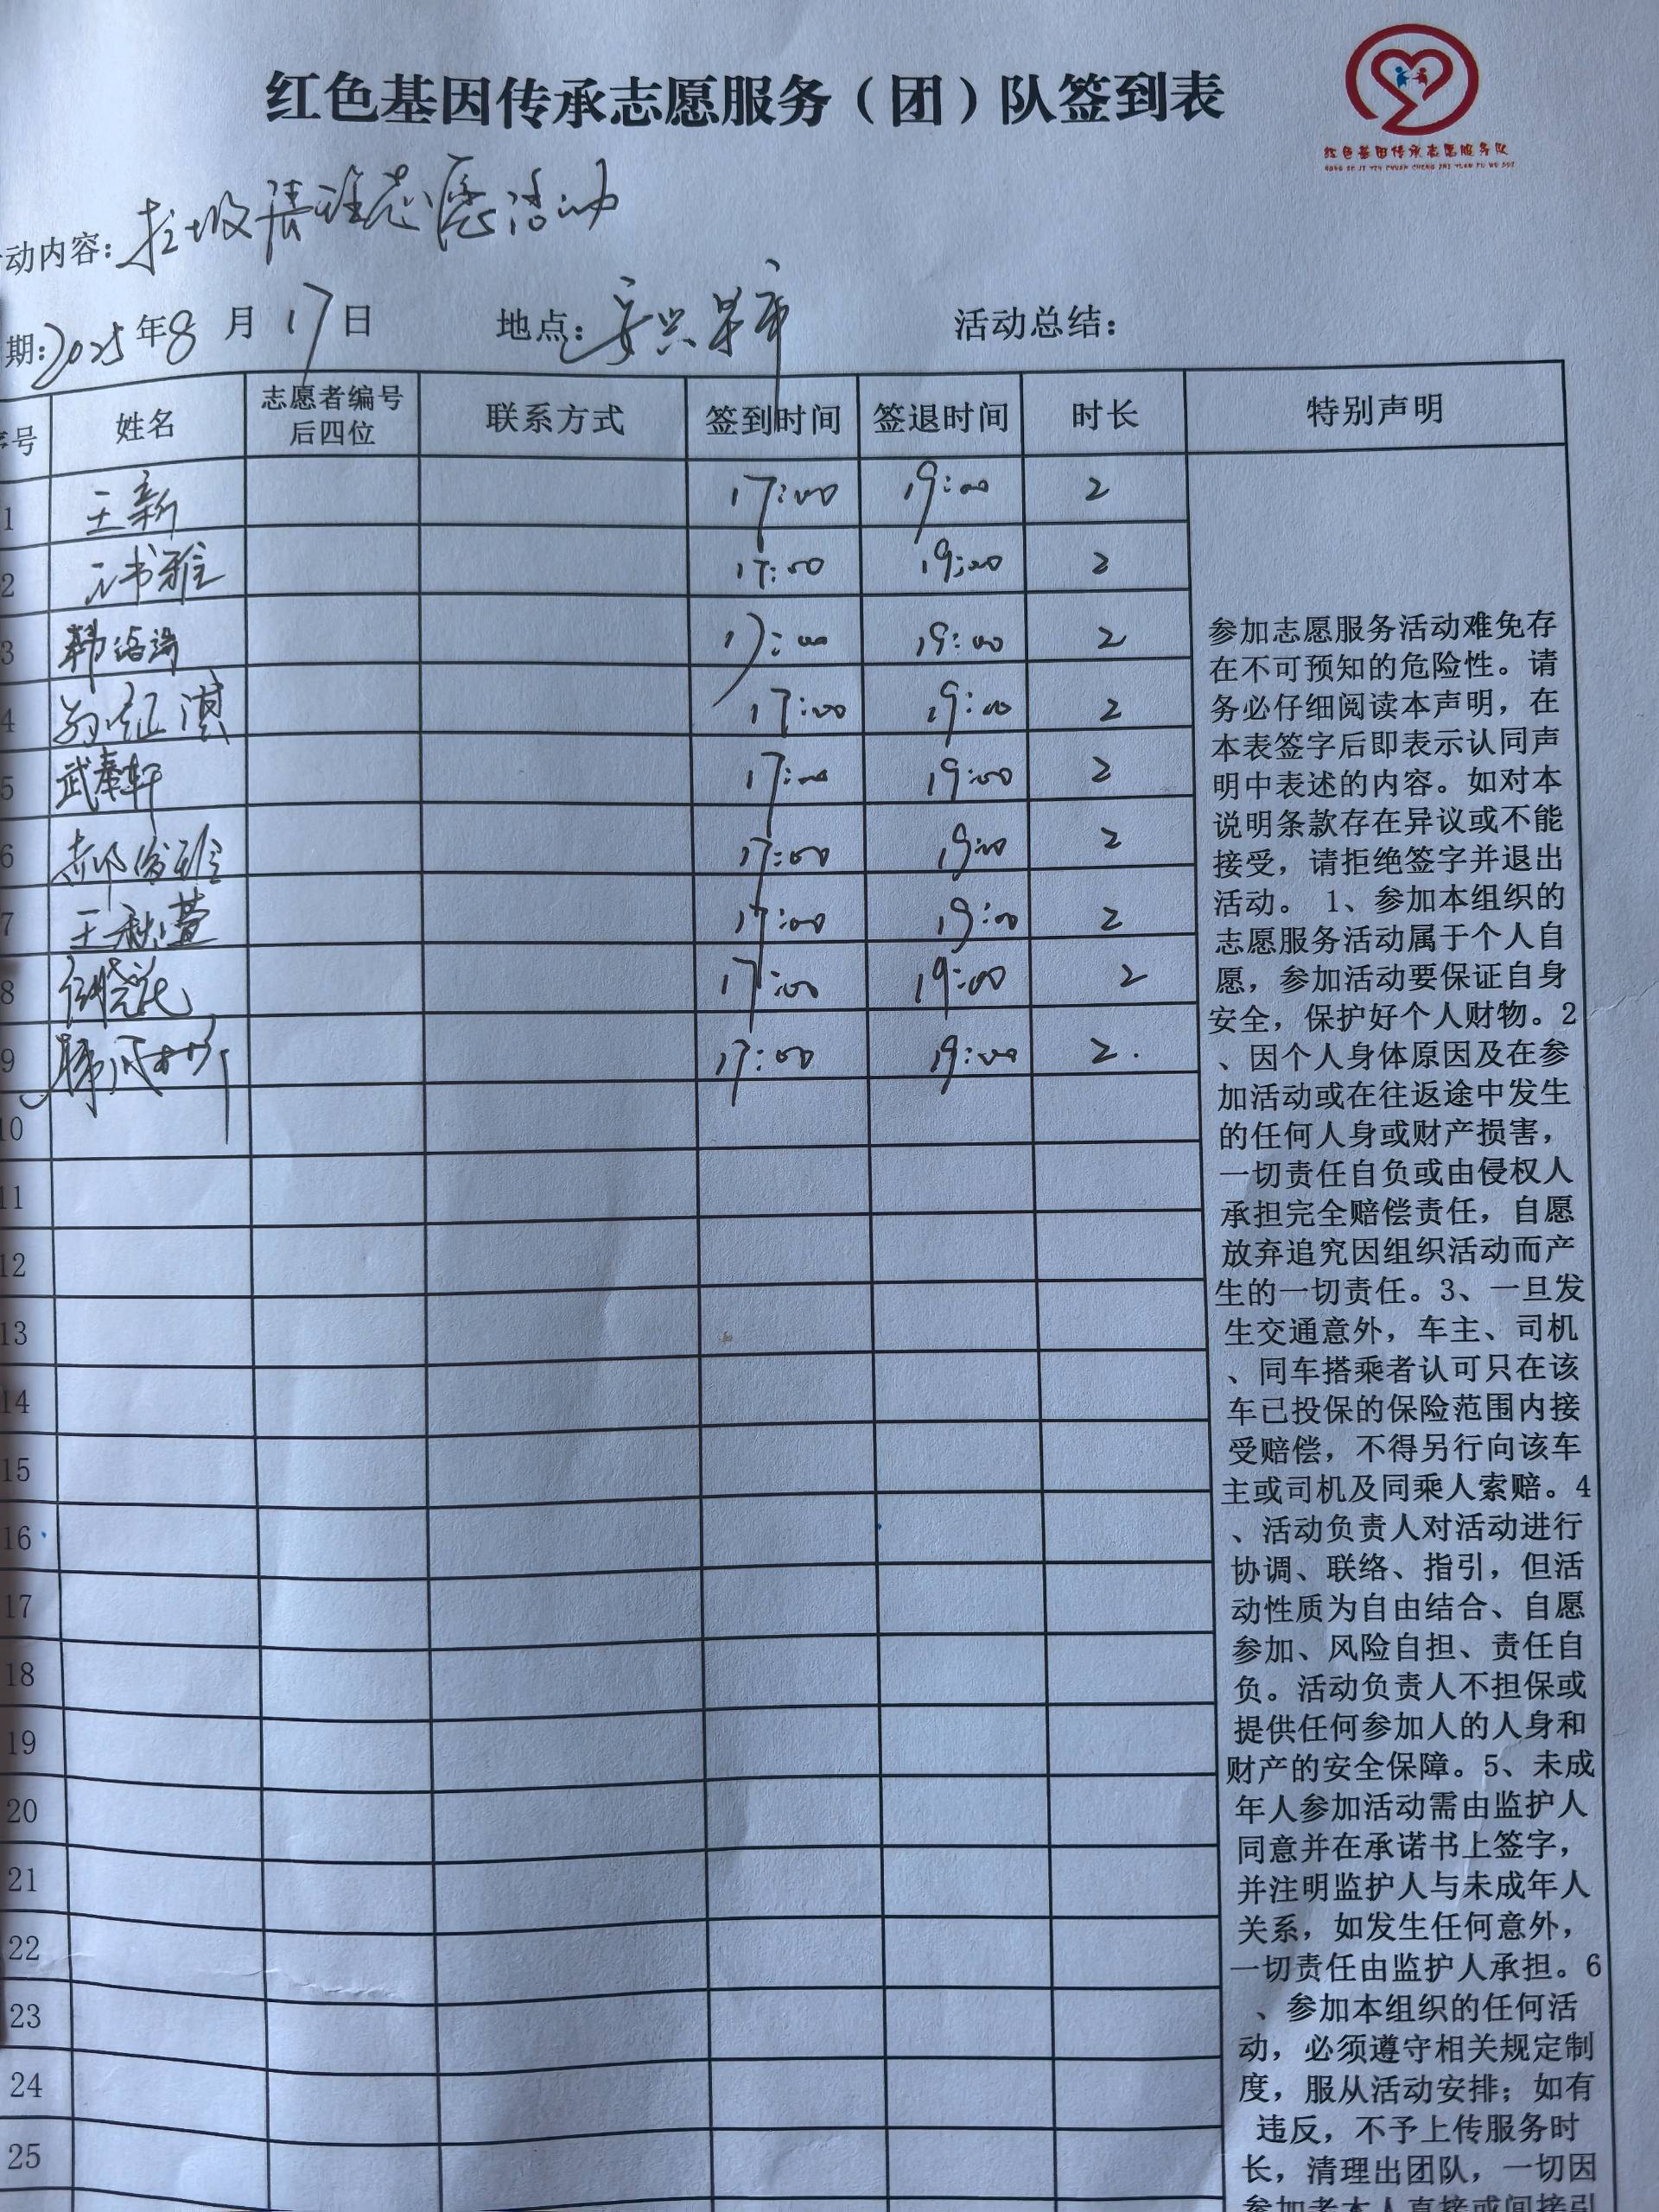 红色基因传承志愿服务（团）队签到表
红色基因传承志愿服务队
HONG SE JI YIN CHUAN CHENG ZHI YUAN FU WU DUI
动内容：垃圾清理志愿活动
期：2025年8月17日 地点： 活动总结：
序号 姓名 志愿者编号后四位 联系方式 签到时间 签退时间 时长 特别声明
1 王新 17:00 19:00 2
2 书雅 17:00 19:00 2
3 韩 17:00 19:00 2
4 17:00 19:00 2
5 武奉轩 17:00 19:00 2
6 郝俊雅 17:00 19:00 2
7 王秋萱 17:00 19:00 2
8 17:00 19:00 2
9 17:00 19:00 2.
10
11
12
13
14
15
16
17
18
19
20
21
22
23
24
25
参加志愿服务活动难免存
在不可预知的危险性。请
务必仔细阅读本声明，在
本表签字后即表示认同声
明中表述的内容。如对本
说明条款存在异议或不能
接受，请拒绝签字并退出
活动。 1、参加本组织的
志愿服务活动属于个人自
愿，参加活动要保证自身
安全，保护好个人财物。2
、因个人身体原因及在参
加活动或在往返途中发生
的任何人身或财产损害，
一切责任自负或由侵权人
承担完全赔偿责任，自愿
放弃追究因组织活动而产
生的一切责任。3、一旦发
生交通意外，车主、司机
、同车搭乘者认可只在该
车已投保的保险范围内接
受赔偿，不得另行向该车
主或司机及同乘人索赔。4
、活动负责人对活动进行
协调、联络、指引，但活
动性质为自由结合、自愿
参加、风险自担、责任自
负。活动负责人不担保或
提供任何参加人的人身和
财产的安全保障。5、未成
年人参加活动需由监护人
同意并在承诺书上签字，
并注明监护人与未成年人
关系，如发生任何意外，
一切责任由监护人承担。6
、参加本组织的任何活
动，必须遵守相关规定制
度，服从活动安排；如有
违反，不予上传服务时
长，清理出团队，一切因
参加者本人直接或间接引